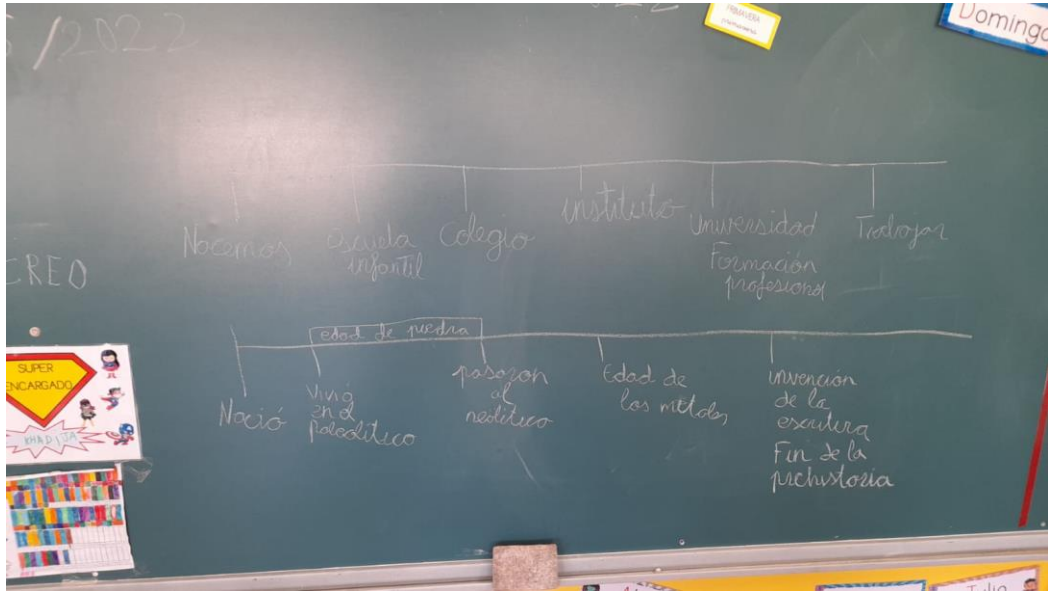 /2022
PRIMAVERA
Domingo
Nacemos
escuela
infantil
Colegio
instituto
Universidad
Formación
profesional
Trabajar
CREO
edad de piedra
Nació
Vivió
en el
paleolítico
pasaron
al
neolítico
Edad de
los metales
invención
de la
escritura
Fin de la
prehistoria
SUPER
ENCARGADO
KHADIJA
Julio